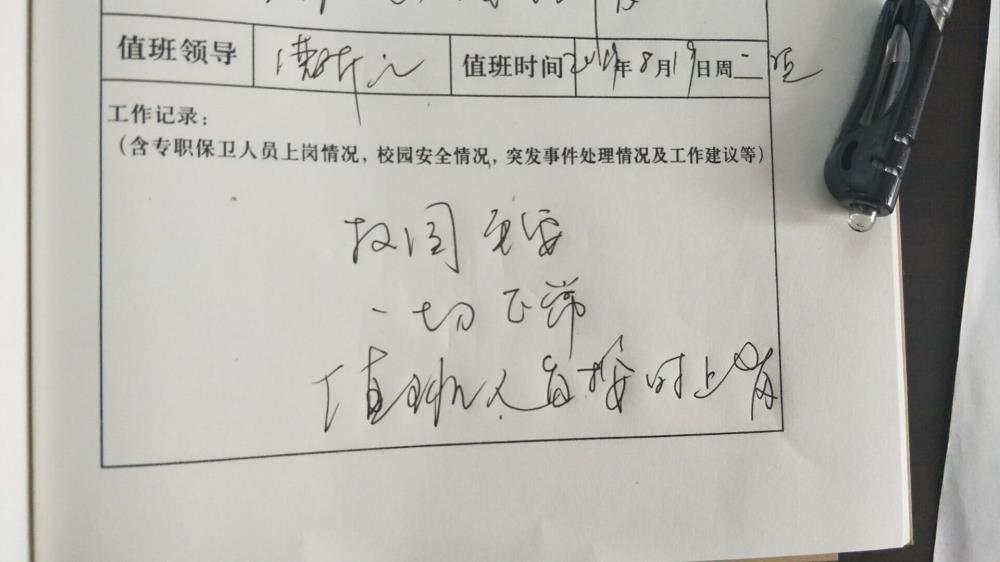 值班领导 值班时间 2019年8月19日周二
工作记录：
（含专职保卫人员上岗情况，校园安全情况，突发事件处理情况及工作建议等）
校园平安
一切正常
值班人员按时上岗